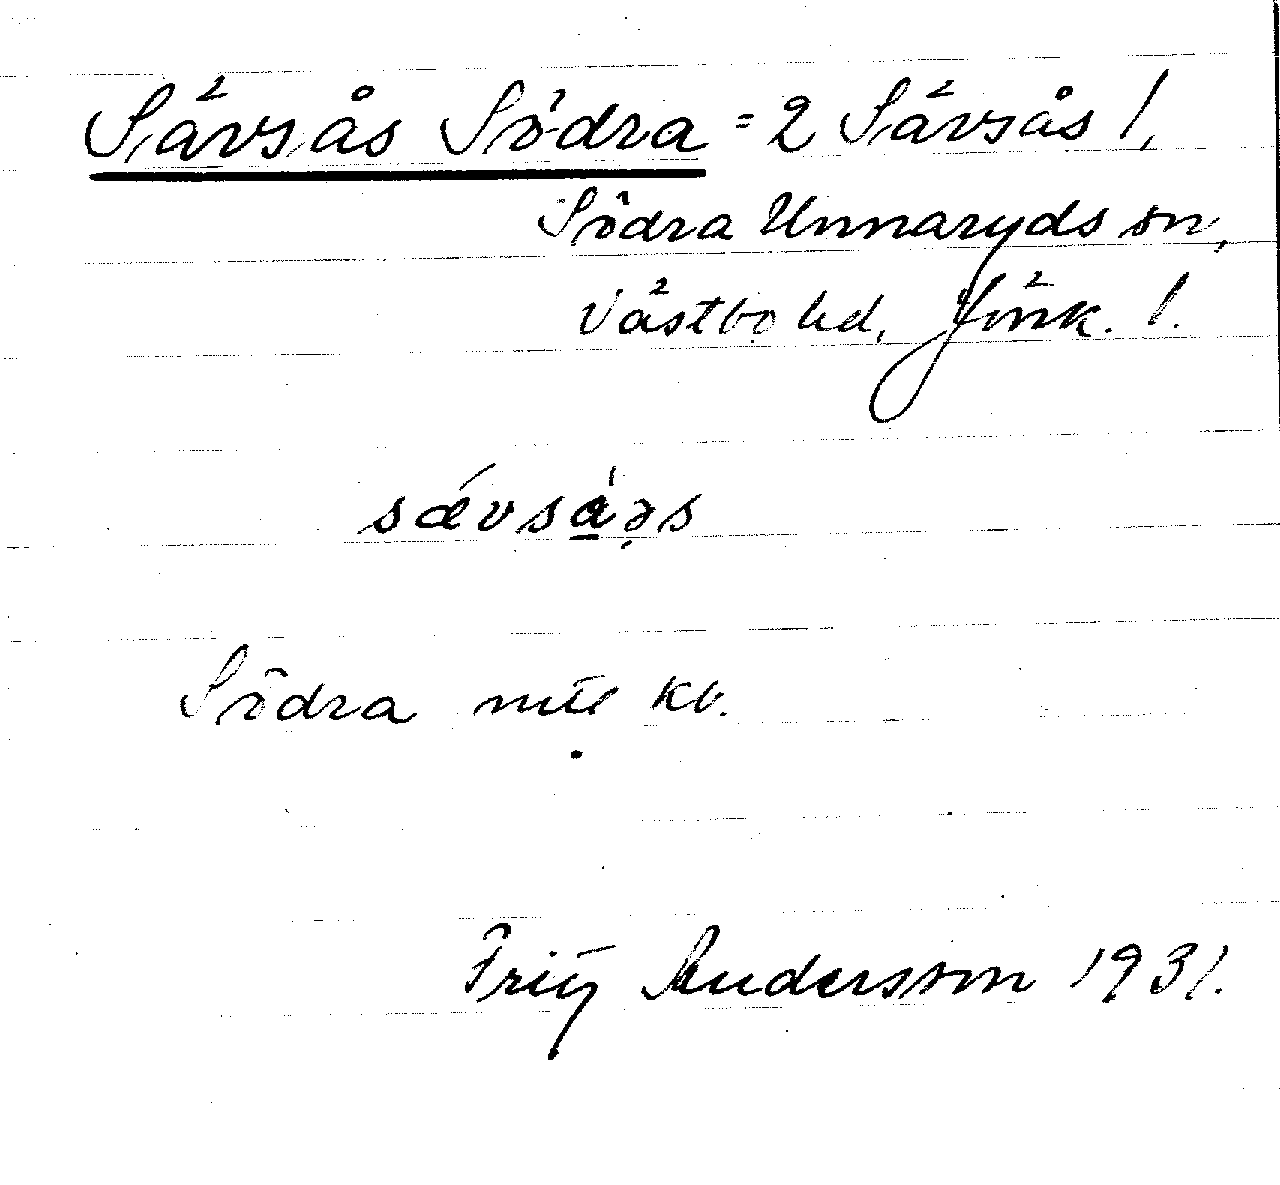 Sävsås Södra = 2 Sävsås /,
Södra Unnaryds sn,
Västbo hd, Jönk. l.
sǽvsáəs
Södra mtl kb.
Fritz Andersson 1931.